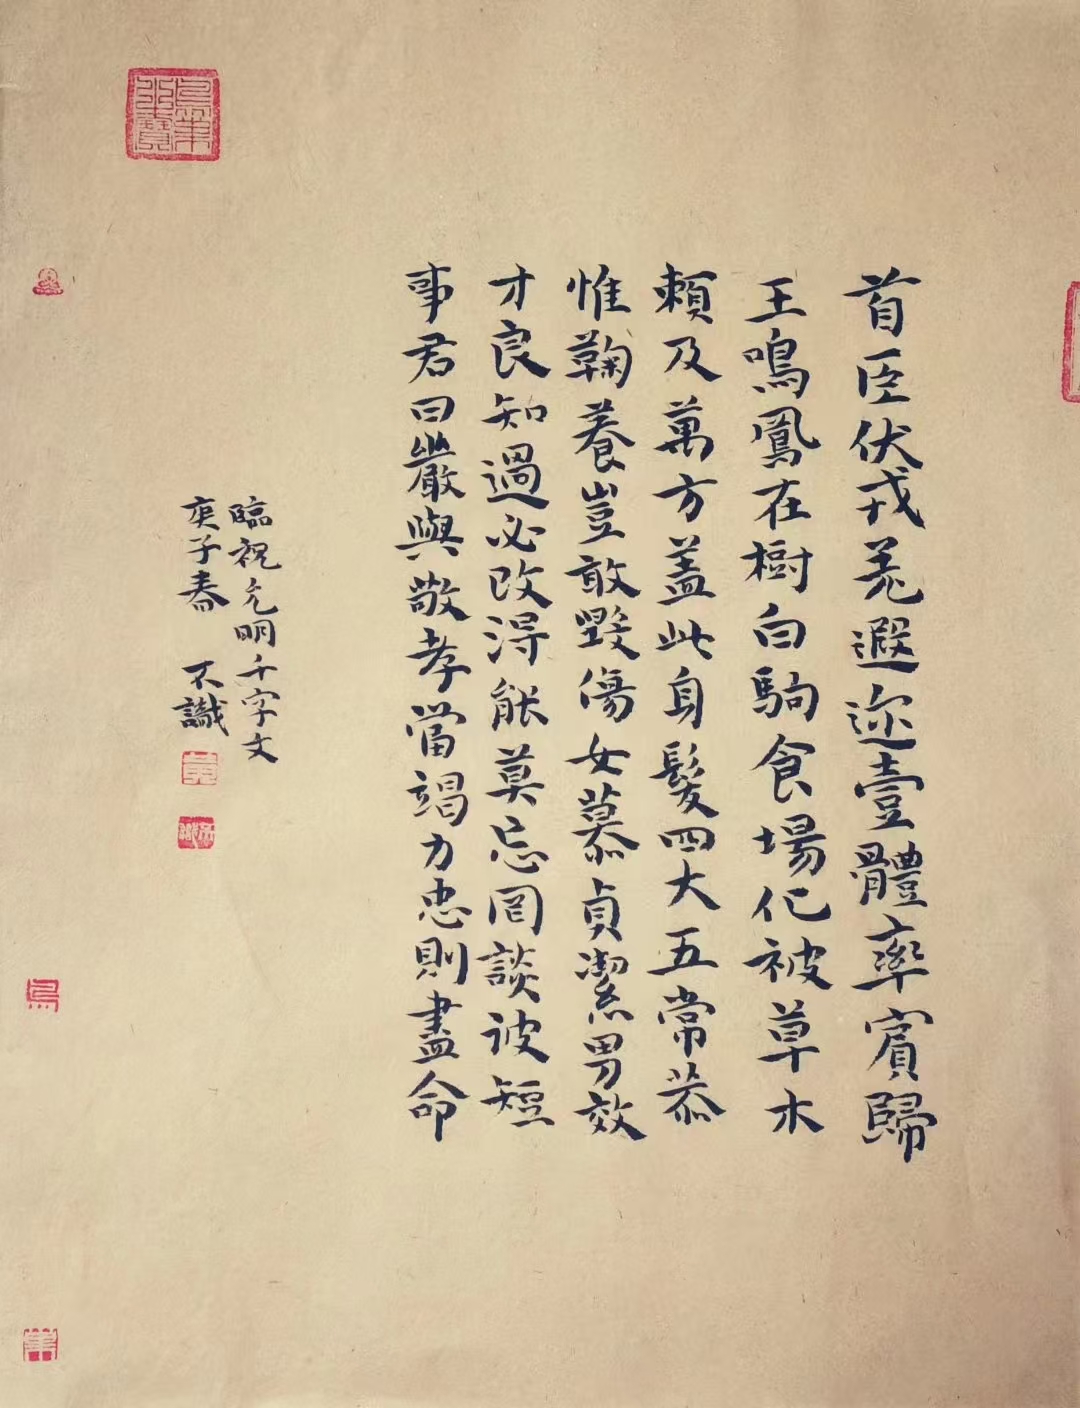 首臣伏戎羌遐迩壹體率賓歸
王鳴鳳在樹白駒食場化被草木
賴及萬方蓋此身髮四大五常恭
惟鞠養豈敢毀傷女慕貞潔男效
才良知過必改得能莫忘罔談彼短
事君曰嚴與敬孝當竭力忠則盡命
臨祝允明千字文
庚子春 不識